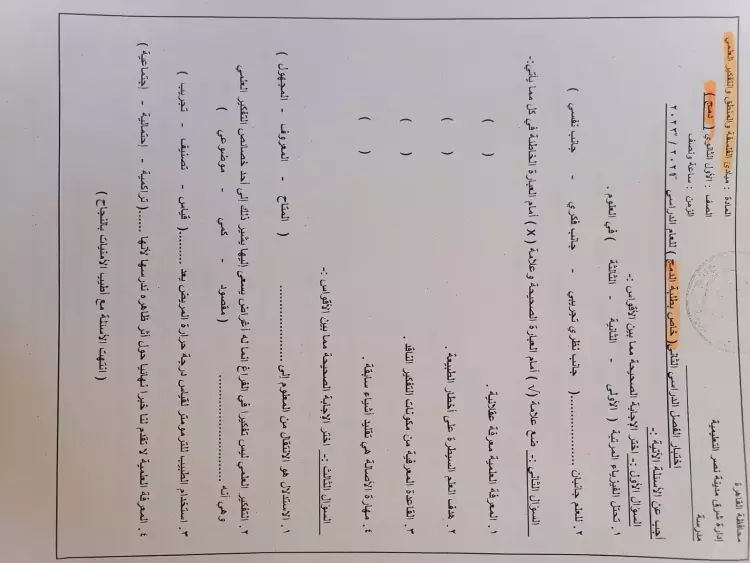 محافظة القاهرة
إدارة شرق مدينة نصر التعليمية
مدرسة
المادة : مبادئ الفلسفة والمنطق والتفكير العلمي
الصف : الأول الثانوي ( دمج )
الزمن : ساعة ونصف
اختبار الفصل الدراسي الثاني ( خاص بطلبة الدمج ) للعام الدراسي ٢٠٢٢ / ٢٠٢٣
أجب عن الأسئلة الآتية :-
السؤال الأول :- اختر الإجابة الصحيحة مما بين الأقواس :-
١. تحتل الفيزياء المرتبة ( الأولى - الثانية - الثالثة ) في العلوم .
٢. للعلم جانبان .................( جانب نظري تجريبي - جانب فكري - جانب نفسي )
السؤال الثاني :- ضع علامة (√) أمام العبارة الصحيحة وعلامة ( X ) أمام العبارة الخاطئة في كل مما يأتي:-
١. المعرفة العلمية معرفة عقلانية . ( )
٢. هدف العلم السيطرة على أخطار الطبيعة . ( )
٣. القاعدة المعرفية من مكونات التفكير الناقد . ( )
٤. مهارة الأصالة هي تقليد أشياء سابقة . ( )
السؤال الثالث :- اختر الإجابة الصحيحة مما بين الأقواس :-
١. الاستدلال هو الانتقال من المعلوم إلى .................. ( المتاح - المعروف - المجهول )
٢. التفكير العلمي ليس تفكيرا في الفراغ إنما له أغراض يسعى إليها يشير ذلك إلى أحد خصائص التفكير العلمي
وهي أنه ........................ ( مقصود - كمي - موضوعي )
٣. استخدام الطبيب للترمومتر لقياس درجة حرارة المريض يعد .........( قياس - تصنيف - تجريب )
٤. المعرفة العلمية لا تقدم لنا خبرا نهائيا حول أثر ظاهره ندرسها لأنها ......( تراكمية - إحتمالية - إجتماعية )
( انتهت الأسئلة مع أطيب الأمنيات بالنجاح )